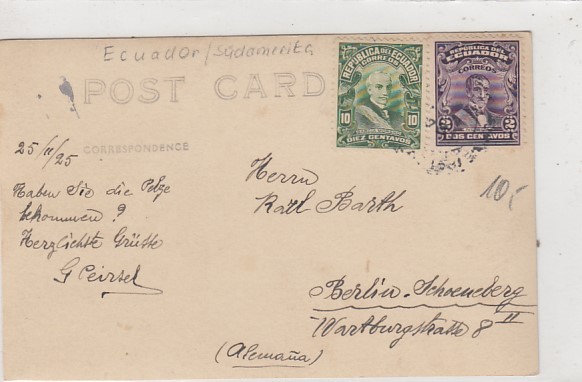 Ecuador/Südamerika
POST CARD
CORRESPONDENCE
REPUBLICA DEL ECUADOR
CORREOS
10 10
DIEZ CENTAVOS
REPUBLICA DEL
ECUADOR
CORREOS
2 2
DOS CENTAVOS
25/II/25
Haben Sie die Pelze
bekommen?
Herzlichste Grüsse
Herrn
Karl Barth
10,-
Berlin-Schoeneberg
Wartburgstrasse 8 II
(Alemaña)